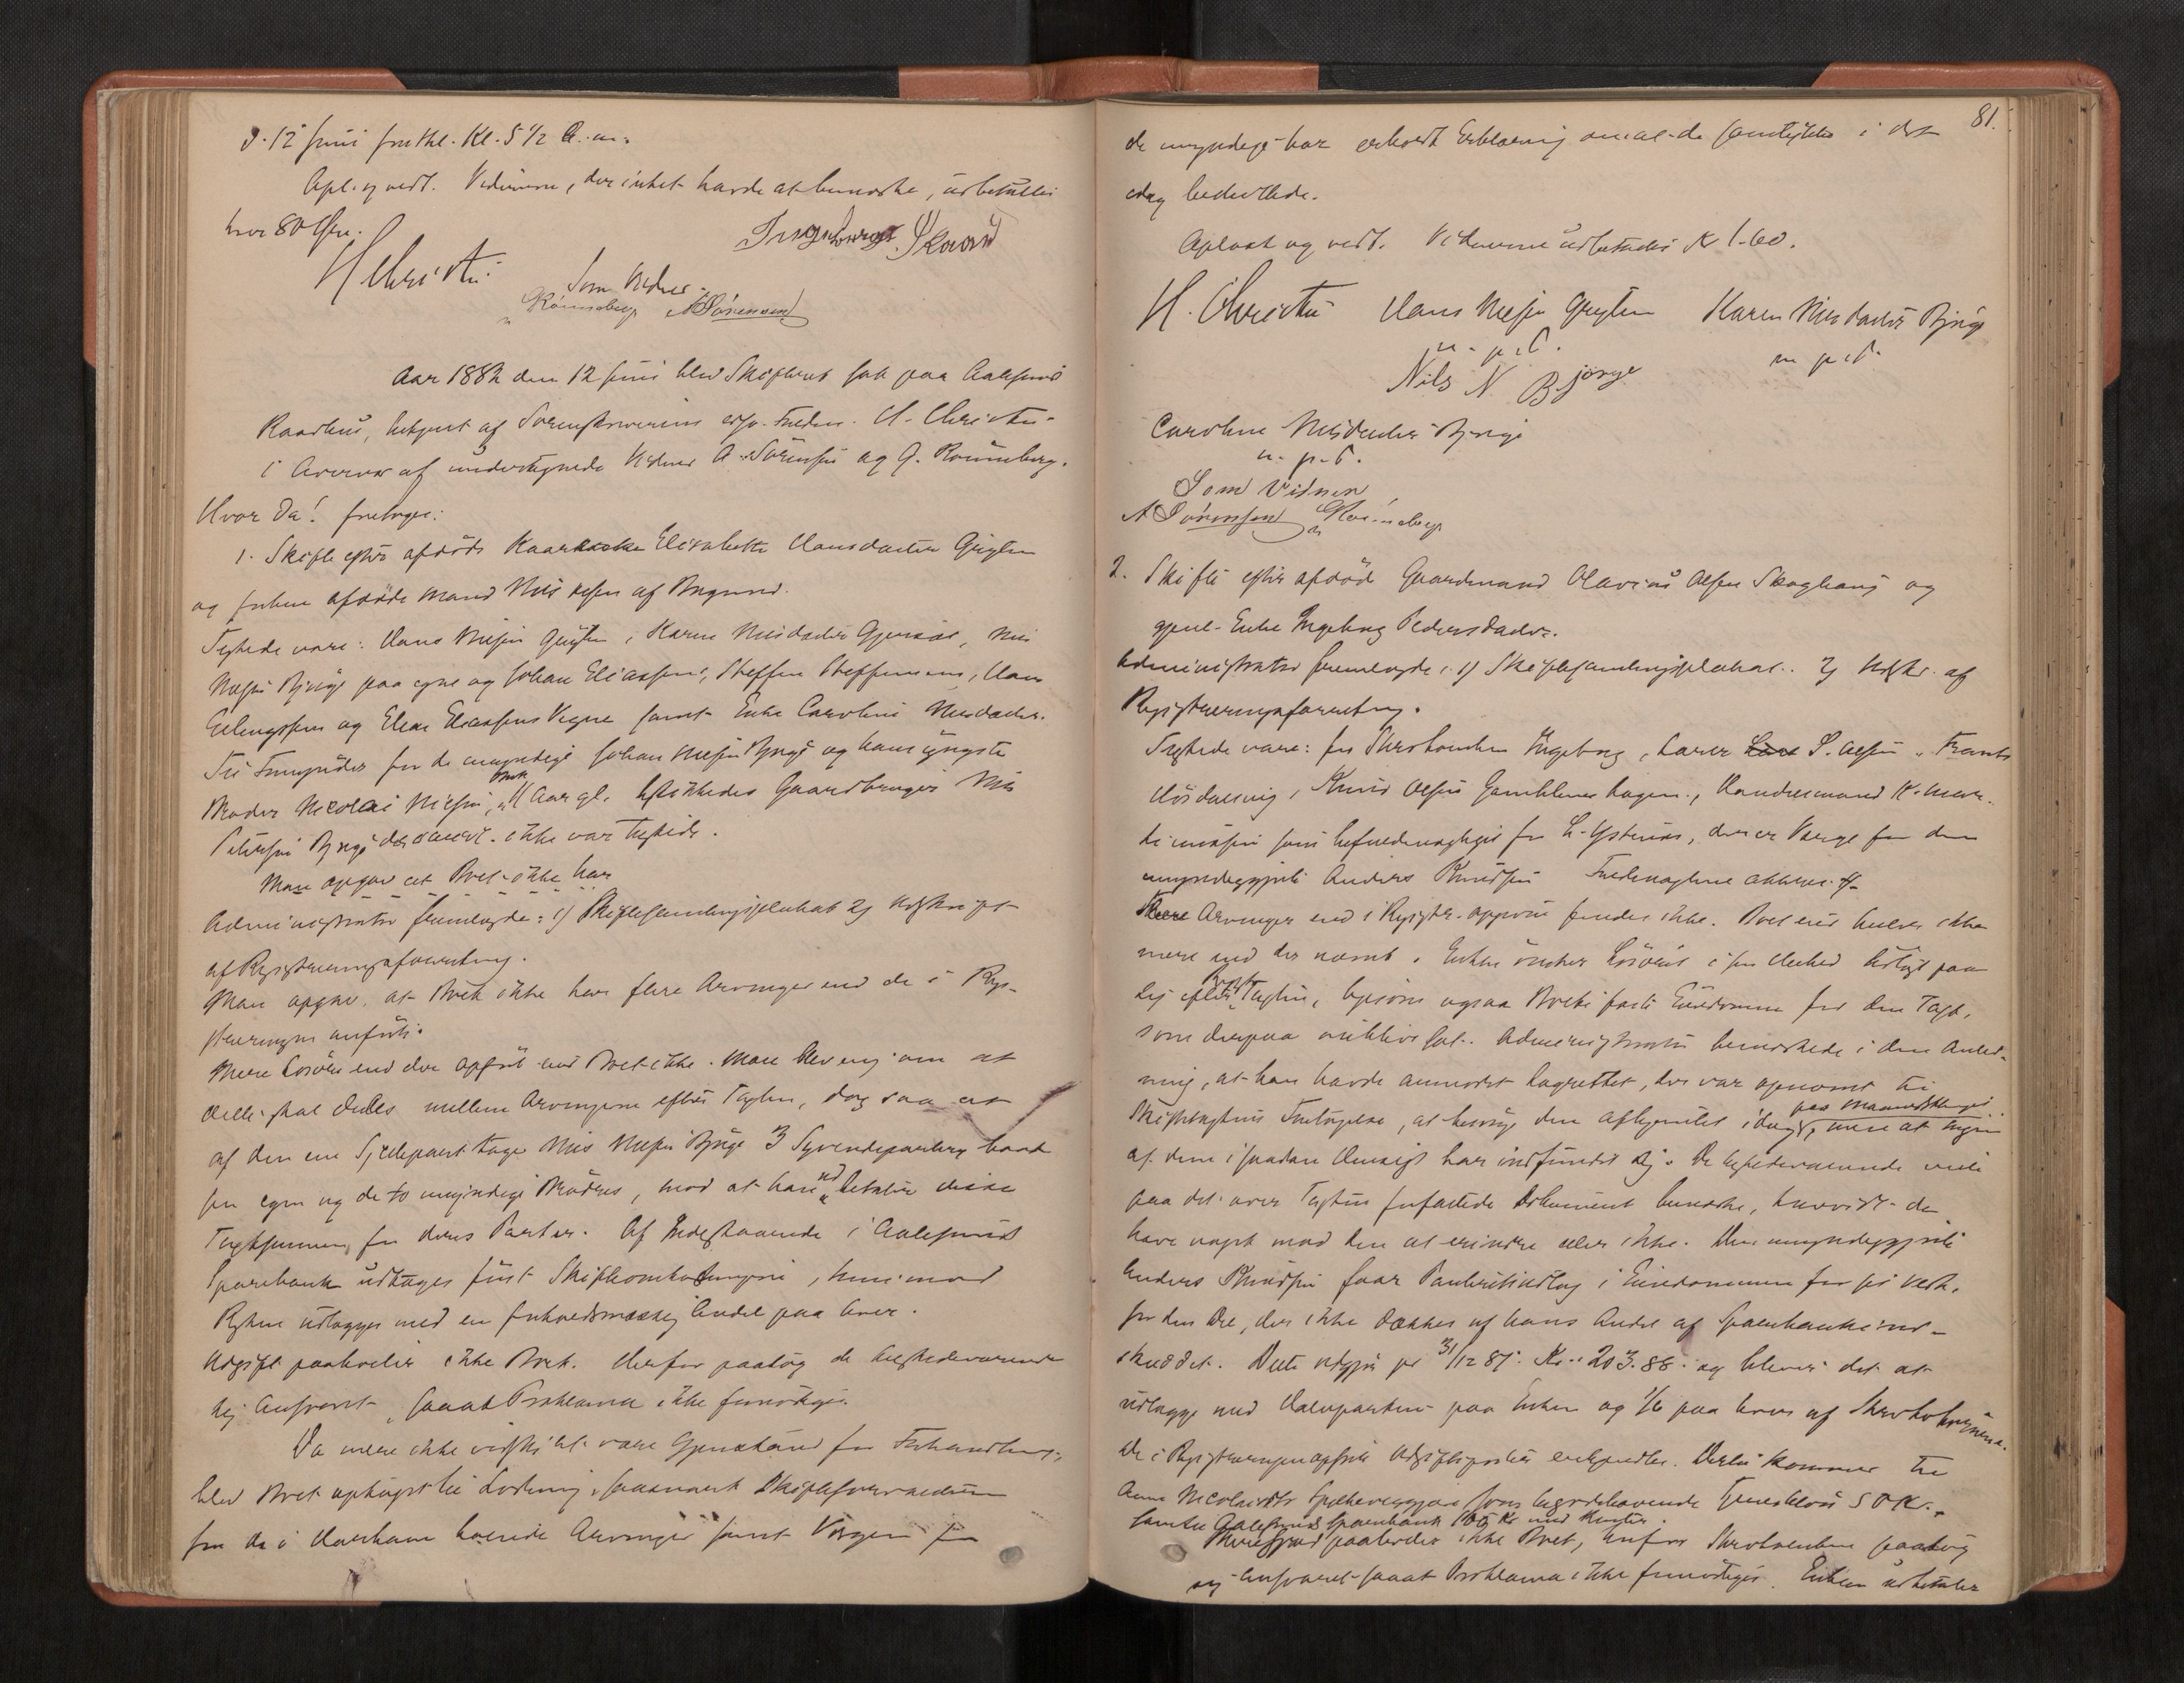 d. 12 Juni Kl. 5 1/2 E.m.
Opl. og vedt. Vidnerne, der intet havde at bemærke, udbetaltes
hver 80 Øre.
Ingeborg Skaar
H Christie
Som Vidner
Rønneberg A Sörensen
Aar 1882 den 12 Juni blev Skifteret sat paa Aalesunds
Raadhus, betjent af Sorenskriveren H. Christie
i Overvær af undertegnede Vidner A. Sörensen og G. Rönneberg.
Hvor da! foretoges:
1. Skifte efter afdöde Elisabeth Hansdatter Gryten
og forhen afdöde Mand Nils af Borgund.
Tilstede vare: Hans Nilsen Gryten, Karen Nilsdatter Nils
Nilsen Bjørge paa egne og Johan Eliassens, Steffen Steffensens, Hans
Erlingssens og Elias Eliassens Vegne samt Enke Caroline Nilsdatter.
Til Formynder for de umyndige Johan Nilsen Bjørge og hans yngste
Broder Nicolai Nilsen, Aar gl. beskikkedes Gaardbruger Nils
Petersen Bjørge der ikke var tilstede.
Man opgav at Boet ikke har
Administrator fremlagde: 1) Skiftesamlingsplakat 2) Udskrift
af Registreringsforretning.
Man opgav, at Boet ikke har flere Arvinger end de i Regi-
streringen anførte.
Mere Lösöre end der opført eied Boet ikke. Man blev enig om at
dette skal deles mellem Arvingerne efter Taxten, dog saa at
af den ene Sjettepart tager Nils Nilsen Bjørge 3 Syvendeparter baade
for egen og de to umyndige Brødres, mod at han udbetaler disse
Taxtsummen for deres Parter. Af Indestaaende i Aalesunds
Sparebank udtages först Skifteomkostningerne, hvorimod
Resten udlægges med en forholdsmæssig Andel paa hver.
Udgift paahviler ikke Boet. Herfor paatog de tilstedeværende
sig Ansvaret, saaat Proklama ikke fornödiges.
Da mere ikke vidstes at være Gjenstand for Forhandling,
blev Boet optaget til Lodning, Skifteforvalteren
for de i Amerika boende Arvinger samt Værgen for
81.
de umyndige har erholdt Erklæring om at de samtykker i det
idag besluttede.
Oplæst og vedt. Vidnerne udbetaltes K 1.60.
H. Christie Hans Nilsen Gryten Karen Nilsdatter Bjørge
m. p. P. m. p. P.
Nils N. Bjørge
Caroline Nilsdatter Bjørge
m. p. P.
Som Vidner
A Sörensen Rønneberg
2. Skifte efter afdöde Gaardmand Olavius Olsen Skoghaug og
gjenl. Enke Ingeborg Pedersdatter.
Administrator fremlagde: 1) Skiftesamlingsplakat. 2) Udskr. af
Registreringsforretning.
Tilstede vare: Ingeborg, Lærer S. Olsen, Frants
Knud Olsen Gamlemshagen, Handelsmand K. Mar-
tinussen som befuldmægtiget for L. Ystenæs, der er Værge for den
umyndiggjorte Anders Knudsen
Flere Arvinger end i Registr. opgivne findes ikke. Boet eier heller ikke
mere end der nævnt. Enken önsker Lösöret i sin Helhed udlagt paa
sig efter Taxten, ligesom ogsaa Boets faste Eiendomme for den Taxt,
som derpaa vil blive sat. Administrator bemærkede i den Anled-
ning, at han havde anmodet Lagrettet, der var opnævnt til
Skiftetaxtens Foretagelse, at besørge den afhjemlet idag paa Mandtallet, men at ingen
af dem i saadan Hensigt har indfundet sig. De tilstedeværende ville
paa det over Taxten forfattede Dokument bemærke, hvorvidt de
have noget mod den at erindre eller ikke. Den umyndiggjorte
Anders Knudsen faar Panteretindlæg i Eiendommen for sit Vedk.
for den Del, der ikke dækkes af hans Andel af Sparebankind-
skuddet. Dette udgjør pr 31/12 81. Kr. 203.86. og bliver det at
udlægge med Halvparten paa Enken og 1/6 paa hver af
De i Registreringen opförte Udgiftsposter erkjendtes. Dertil kommer til
Anne Nicolaisdtr som tilgodehavende Tjenestelön 50 Kr.,
samt Aalesunds Sparebank 100 Kr med Renter.
Mere Gjæld paahviler ikke Boet, hvorfor paatog
sig Ansvaret saaat Proklama ikke fornödiges. Enken udbetaler